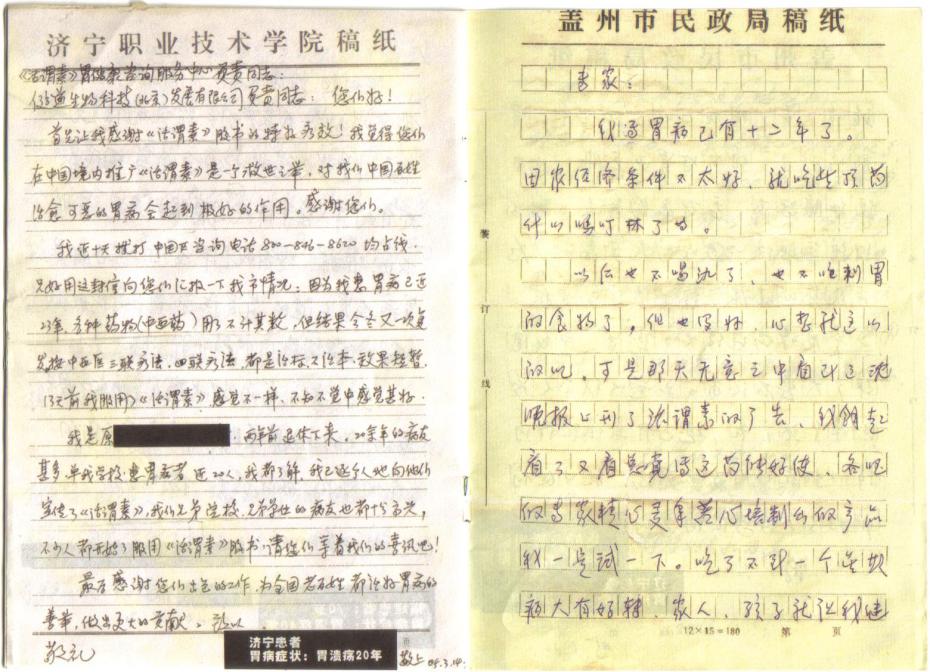 济宁职业技术学院稿纸
《活谓素》胃健康咨询服务中心负责同志:
生物科技(北京)发展有限公司负责同志: 您们好!
首先让我感谢《活谓素》胶书的特殊疗效!我觉得您们
在中国境内推广《活谓素》是一个救世之举,对我们中国百姓
治愈可恶的胃病会起到极好的作用。感谢您们。
我近十天拨打中国区咨询电话800-846-8620均占线.
只好用这封信向您们汇报一下我市情况:因为我患胃病已近
23年,各种药物(中西药)用了不计其数,但结果今冬又一次复
发,按中西医三联疗法,四联疗法,都是治标不治本,效果短暂.
13天前我服用了《活谓素》感觉不一样,不知不觉中感觉甚好.
我是原 两年前退休下来,20余年的病友
甚多,单我学校患胃病者近20人,我都了解,我已逐个地向他们
宣传了《活谓素》,我们兄弟学校、兄弟单位的病友也都十分高兴,
不少人都开始了服用《活谓素》胶书,请您们等着我们的喜讯吧!
最后感谢您们出色的工作,为全国老百姓都治好胃病的
善举,做出更大的贡献。 致以
敬礼
济宁患者
胃病症状:胃溃疡20年
敬上
盖州市民政局稿纸
专家:
我得胃病已有十二年了。
因家经济条件不太好,就吃些
什么吗叮林了吗。
以后也不喝酒了,也不吃刺胃
的食物了,但也没好,心想就这么
的吧,可是那天无意之中看到了沈
晚报上刊了活谓素的广告,我翻起
看了又看总觉得这药能好使,各吧
的专家精心美拿苦心培制的的产品
我一定试一下。吃了不到一个
病大有好转,家人、孩子就让我
12×15=180 第 页